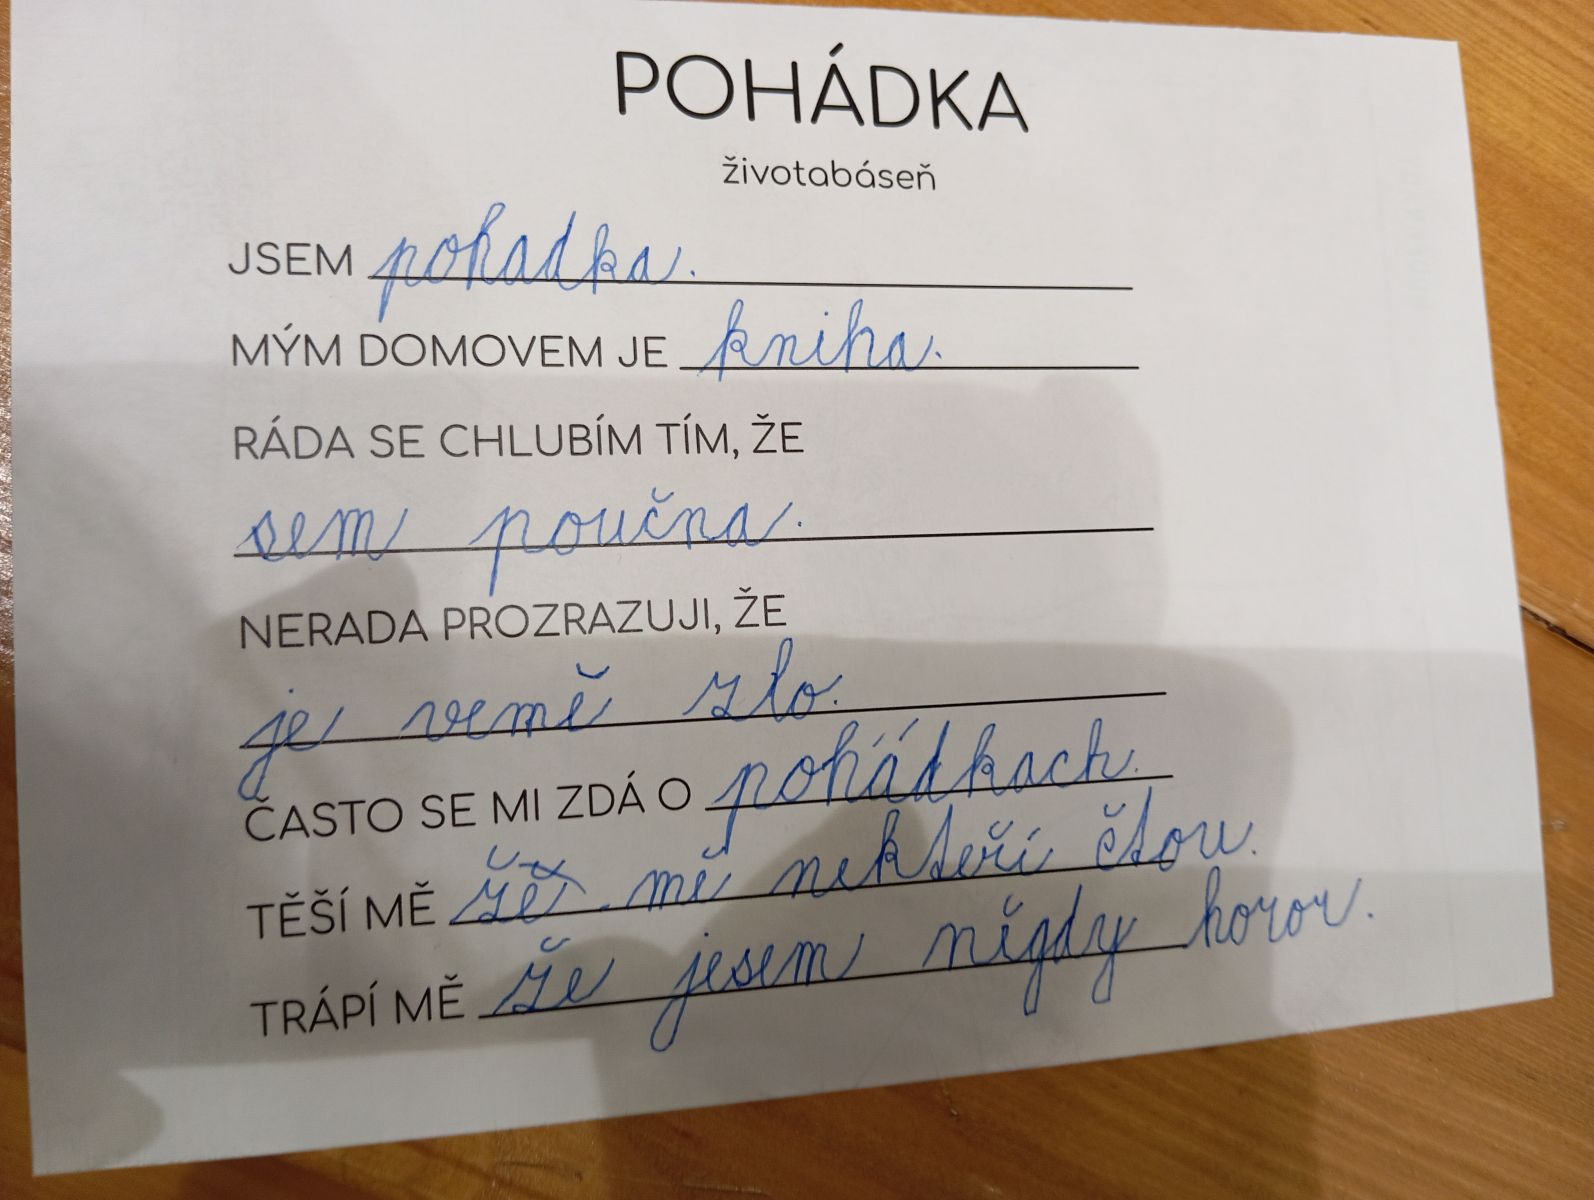 POHÁDKA
životabáseň
JSEM pohadka.
MÝM DOMOVEM JE kniha.
RÁDA SE CHLUBÍM TÍM, ŽE
sem poučna.
NERADA PROZRAZUJI, ŽE
je vemě zlo.
ČASTO SE MI ZDÁ O pohádkach.
TĚŠÍ MĚ žě mě nekteří čtou.
TRÁPÍ MĚ že jesem nigdy horor.